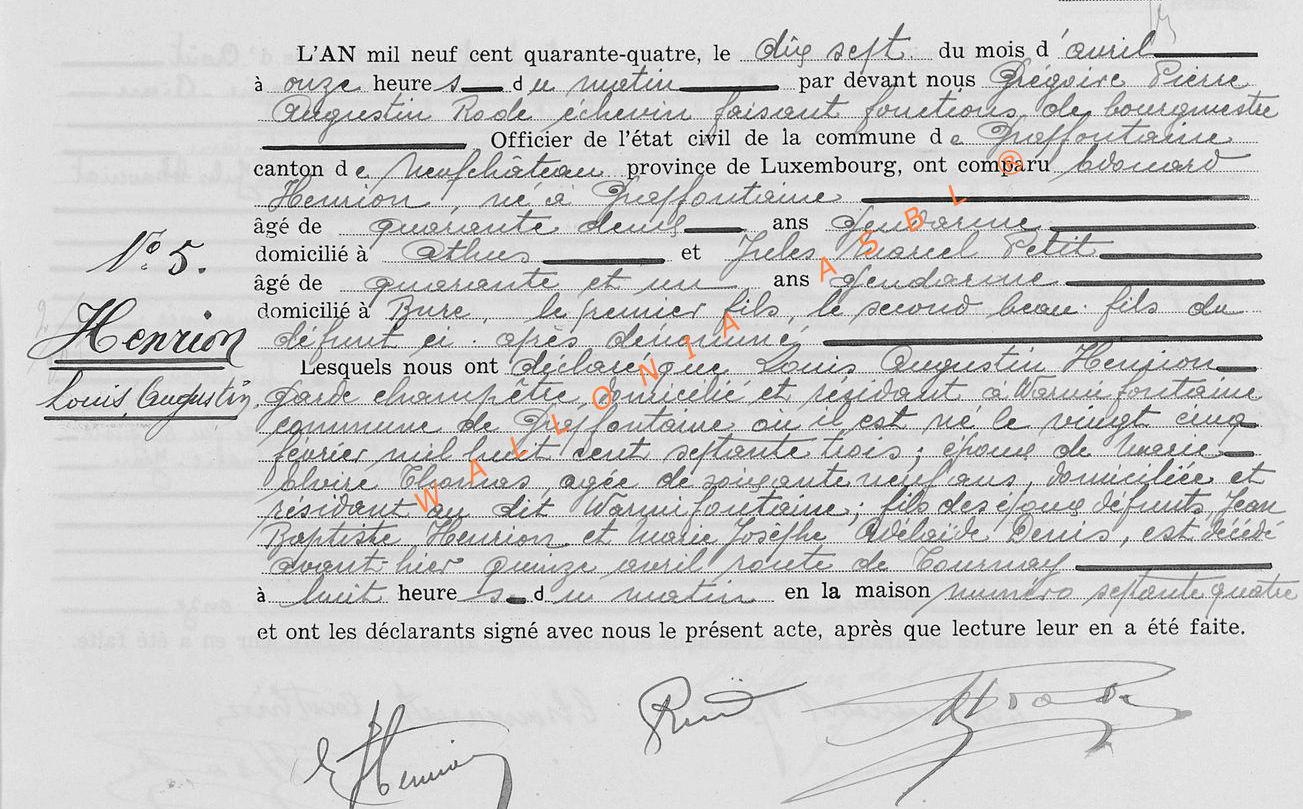 L'AN mil neuf cent quarante-quatre, le dix sept du mois d'avril
à onze heures du matin par devant nous Grégoire Pierre
Augustin Rode échevin faisant fonctions de bourgmestre
Officier de l'état civil de la commune de Graffontaine
canton de Neufchâteau province de Luxembourg, ont comparu Edouard
Henrion, né à Graffontaine
âgé de quarante deux ans gendarme
domicilié à Athus et Jules Marcel Petit
âgé de quarante et un ans gendarme
domicilié à Bure, le premier fils, le second beau-fils du
défunt ci-après dénommé,
N° 5.
Henrion
Louis, Augustin
Lesquels nous ont déclaré que Louis Augustin Henrion
garde champêtre domicilié et résidant à Warmifontaine
commune de Graffontaine où il est né le vingt cinq
février mil huit cent septante trois; époux de Marie
Thomas, agée de soixante neuf ans, domiciliée et
résidant au dit Warmifontaine; fils des époux défunts Jean
Baptiste Henrion et Marie Josèphe Adélaïde Denis, est décédé
avant-hier quinze avril route de Tournay
à huit heures du matin en la maison numéro septante quatre
et ont les déclarants signé avec nous le présent acte, après que lecture leur en a été faite.
E Henrion
WALLONIA ASBL ®